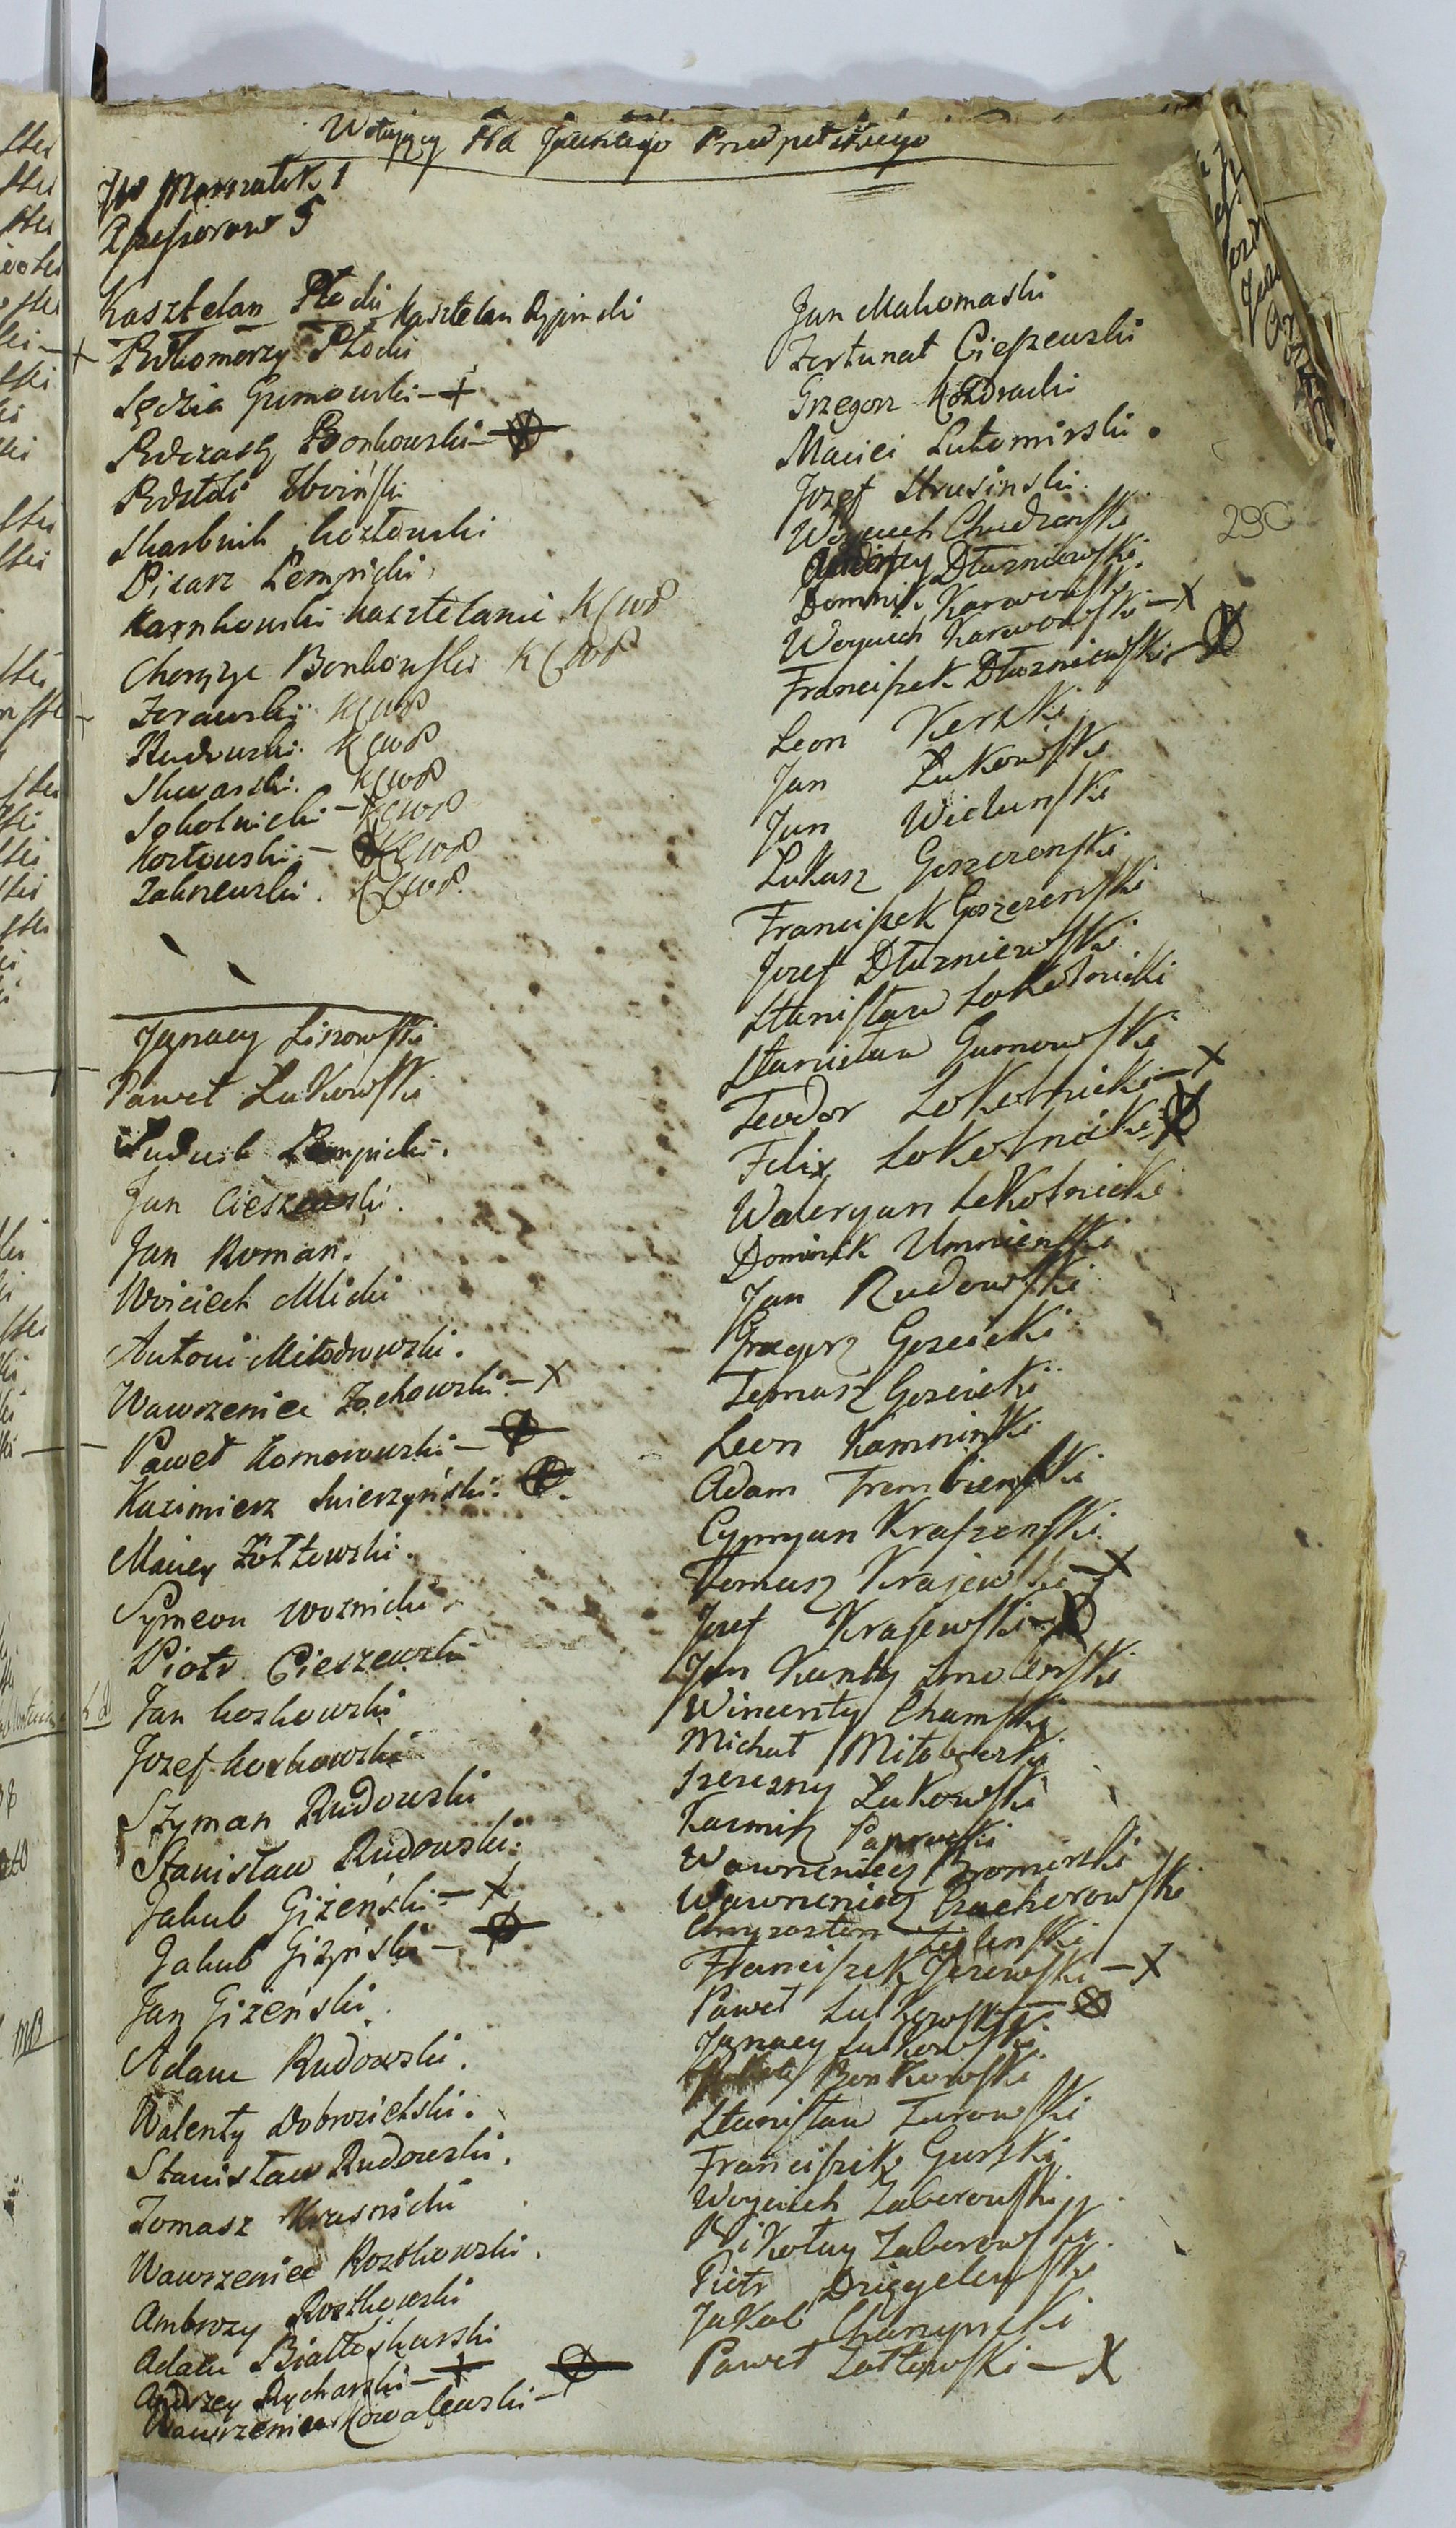 Wotujący Na Jacentego Przedpełskiego
JW Marszałek 1
Assessorow 5
Kasztelan Płocki Kasztelan Rypinski
Podkomorzy Płocki
Sędzia Gumowski – +
Podczaszy Bonkowski
Podstoli Zboiński
Skarbnik Kozłowski
Pisarz Lempicki
Karnkowski Kasztelanic K C W P
Chorąży Bonkowski K C W P
Zerawski K C W P
Rudowski K C W P
Skwarski. K C W P
Sokolnicki – K C W P
Kozłowski – K C W P
Zakrzewski. K C W P
Ignacy Liszowski
Paweł Łukowski
Ludwik Lempicki.
Jan Cieszewski.
Jan Roman.
Woiciech Mlicki
Antoni Miłodrowski.
Wawrzeniec Żochowski – X
Paweł Komorowski –
Kazimierz Swierzyński.
Maciey Żółtowski.
Symeon Woznicki.
Piotr Cieszewski
Jan Koskowski
Jozef Koskowski
Szyman Rudowski
Stanisław Rudowski.
Jakub Giżeński – X
Jakub Giżyński –
Jan Giżeński.
Adam Rudowski.
Walenty Dobrzielski.
Stanisław Rudowski.
Tomasz Krasnicki
Wawrzeniec Rostkowski.
Ambrozy Rostkowski
Adam Białłoskurski
Andrzey Rycharski – +
Wawrzeniec Kowalewski –
Jan Makomaski
Fortunat Cieszewski
Grzegorz
Maciei Lutomirski.
Jozef Strusinski.
Woyciech Chudzenski
Dłuzniewski
Dominik Karwowski
Woyciech Karwowski – X
Franciszek Dłuzniewski –
Leon Kerski
Jan Łukowski
Jan Wielunski
Łukasz Goszczenski
Franciszek Goszczenski
Jozef Dłuzniewski
Stanisław Sokolnicki
Stanisław Gumowski
Teodor Sokolnicki – X
Felix Sokolnicki
Waleryan Sokolnicki
Dominik Umnienski
Jan Rudowski
Grzegorz Goscicki
Tomasz Goscicki
Leon Kamninski
Adam Trembienski
Cypryan Kraszenski
Tomasz Krajewski – X
Jozef Krajewski –
Jan Kanty Smolenski
Wincenty Chamski
Michał Miłobęzki
Szczesny Łukowski
Kazmirz Paprocki
Wawrzeniec Bromirski
Wawrzeniec Czachorowski
Chryzostom
Franciszek Jezewski – X
Paweł Łutkowski
Ignacy Łutkowski
Bonkowski
Stanisław Zurowski
Franciszek Gurski
Woyciech Zaborowski
Mikołay Zaborowski
Piotr Dzięgelewski
Jakob Charzynski
Paweł Zołtowski – X
290